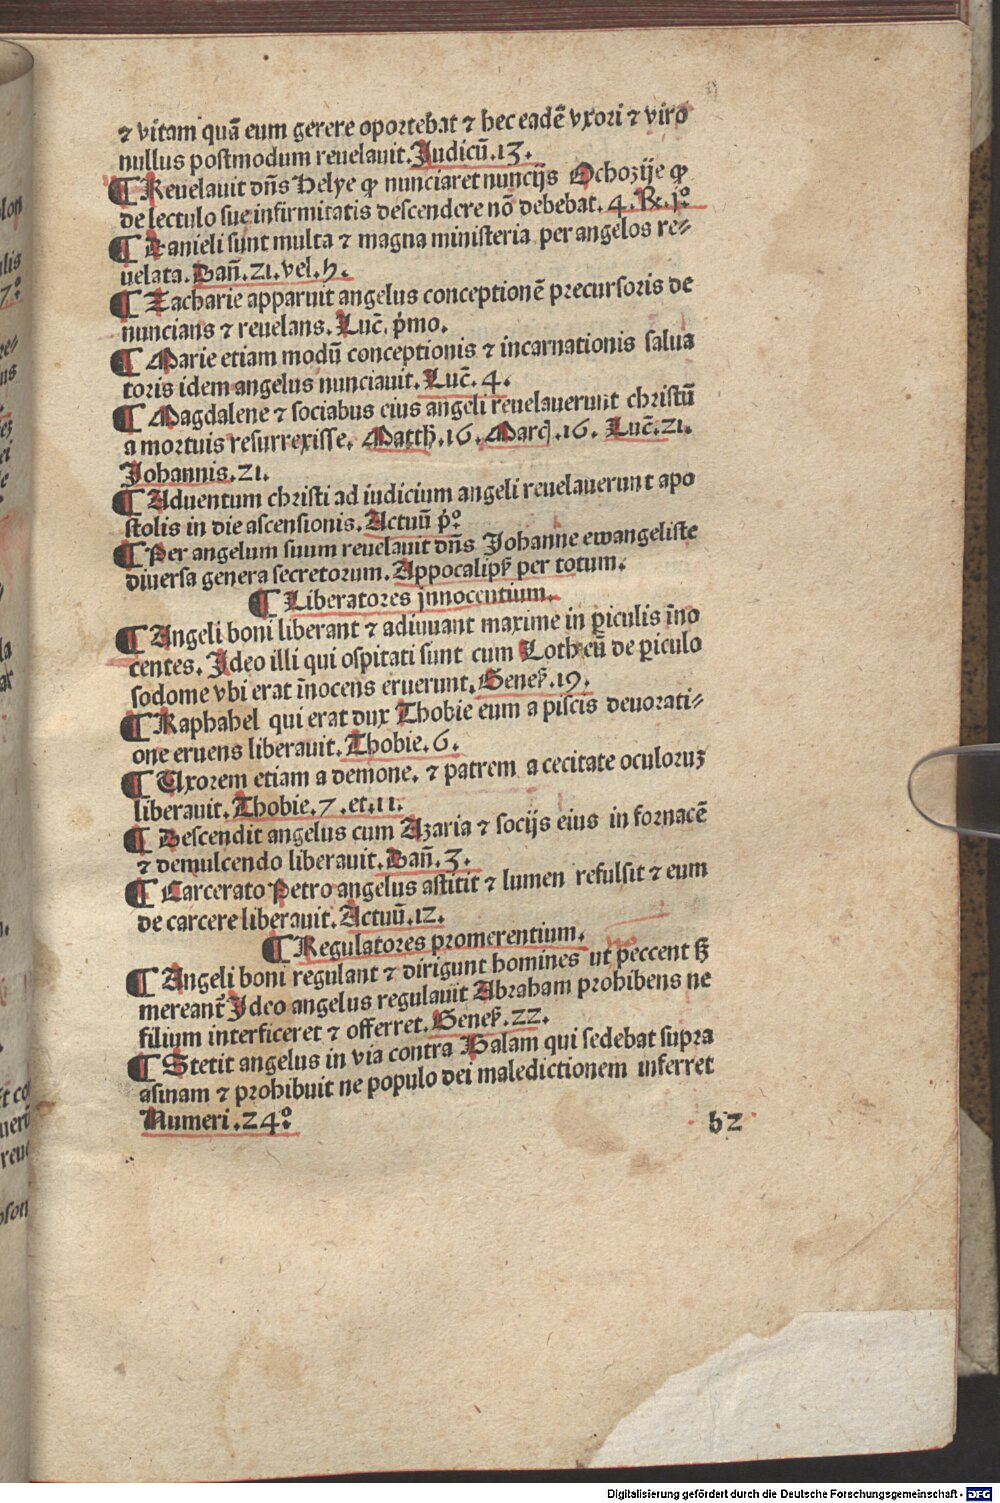 ⁊ vitam quā eum gerere oportebat ⁊ hec eadē vxori ⁊ viro
nullus postmodum reuelauit. Judicū .13.
¶ Reuelauit dn̄s Helye ꝙ nunciaret nuncijs Ochozije ꝙ
de lectulo sue infirmitatis descendere nō debebat. 4. R. jº
¶ Danieli sunt multa ⁊ magna ministeria per angelos re⸗
uelata. Dan̄. 21. vel. h.
¶ Zacharie apparuit angelus conceptionē precursoris de
nuncians ⁊ reuelans. Luc̄. p̄mo.
¶ Marie etiam modū conceptionis ⁊ incarnationis salua
toris idem angelus nunciauit. Luc̄. 4.
¶ Magdalene ⁊ sociabus eius angeli reuelauerunt christū
a mortuis resurrexisse. Matth. 16. Marci .16. Luc̄. 21.
Johannis. 21.
¶ Aduentum christi ad iudicium angeli reuelauerunt apo
stolis in die ascensionis. Actuū pº
¶ Per angelum suum reuelauit dn̄s Johanne ewangeliste
diuersa genera secretorum. Appocalipß per totum.
¶ Liberatores jnnocentium.
¶ Angeli boni liberant ⁊ adiuuant maxime in ꝑiculis īno
centes. Ideo illi qui ospitati sunt cum Loth eū de ꝑiculo
sodome vbi erat īnocens eruerunt. Geneß .19.
¶ Raphahel qui erat dux Thobie eum a piscis deuorati⸗
one eruens liberauit. Thobie. 6.
¶ Uxorem etiam a demone. ⁊ patrem a cecitate oculoruꝫ
liberauit. Thobie. 7. et. 11.
¶ Descendit angelus cum Azaria ⁊ socijs eius in fornacē
⁊ demulcendo liberauit. Dan̄. 3.
¶ Carcerato Petro angelus astitit ⁊ lumen refulsit ⁊ eum
de carcere liberauit. Actuū. 12.
¶ Regulatores promerentium.
¶ Angeli boni regulant ⁊ dirigunt homines ut peccent ß
mereant̄ Ideo angelus regulauit Abraham prohibens ne
filium interficeret ⁊ offerret. Geneß. 22.
¶ Stetit angelus in via contra Balam qui sedebat supra
asinam ⁊ prohibuit ne populo dei maledictionem inferret
Numeri. 24º
b2
Digitalisierung gefördert durch die Deutsche Forschungsgemeinschaft - DFG